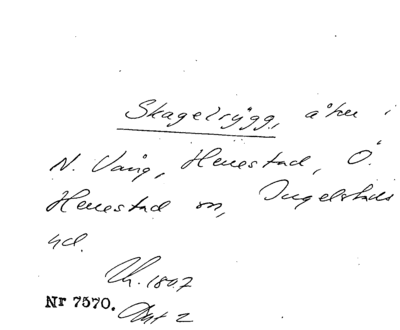 Skagelrygg, åker i
N. Vång, Herrestad, Ö.
Herrestad sn, Ingelstads
hd.
Lh. 1807
Nr 7570. Akt 2